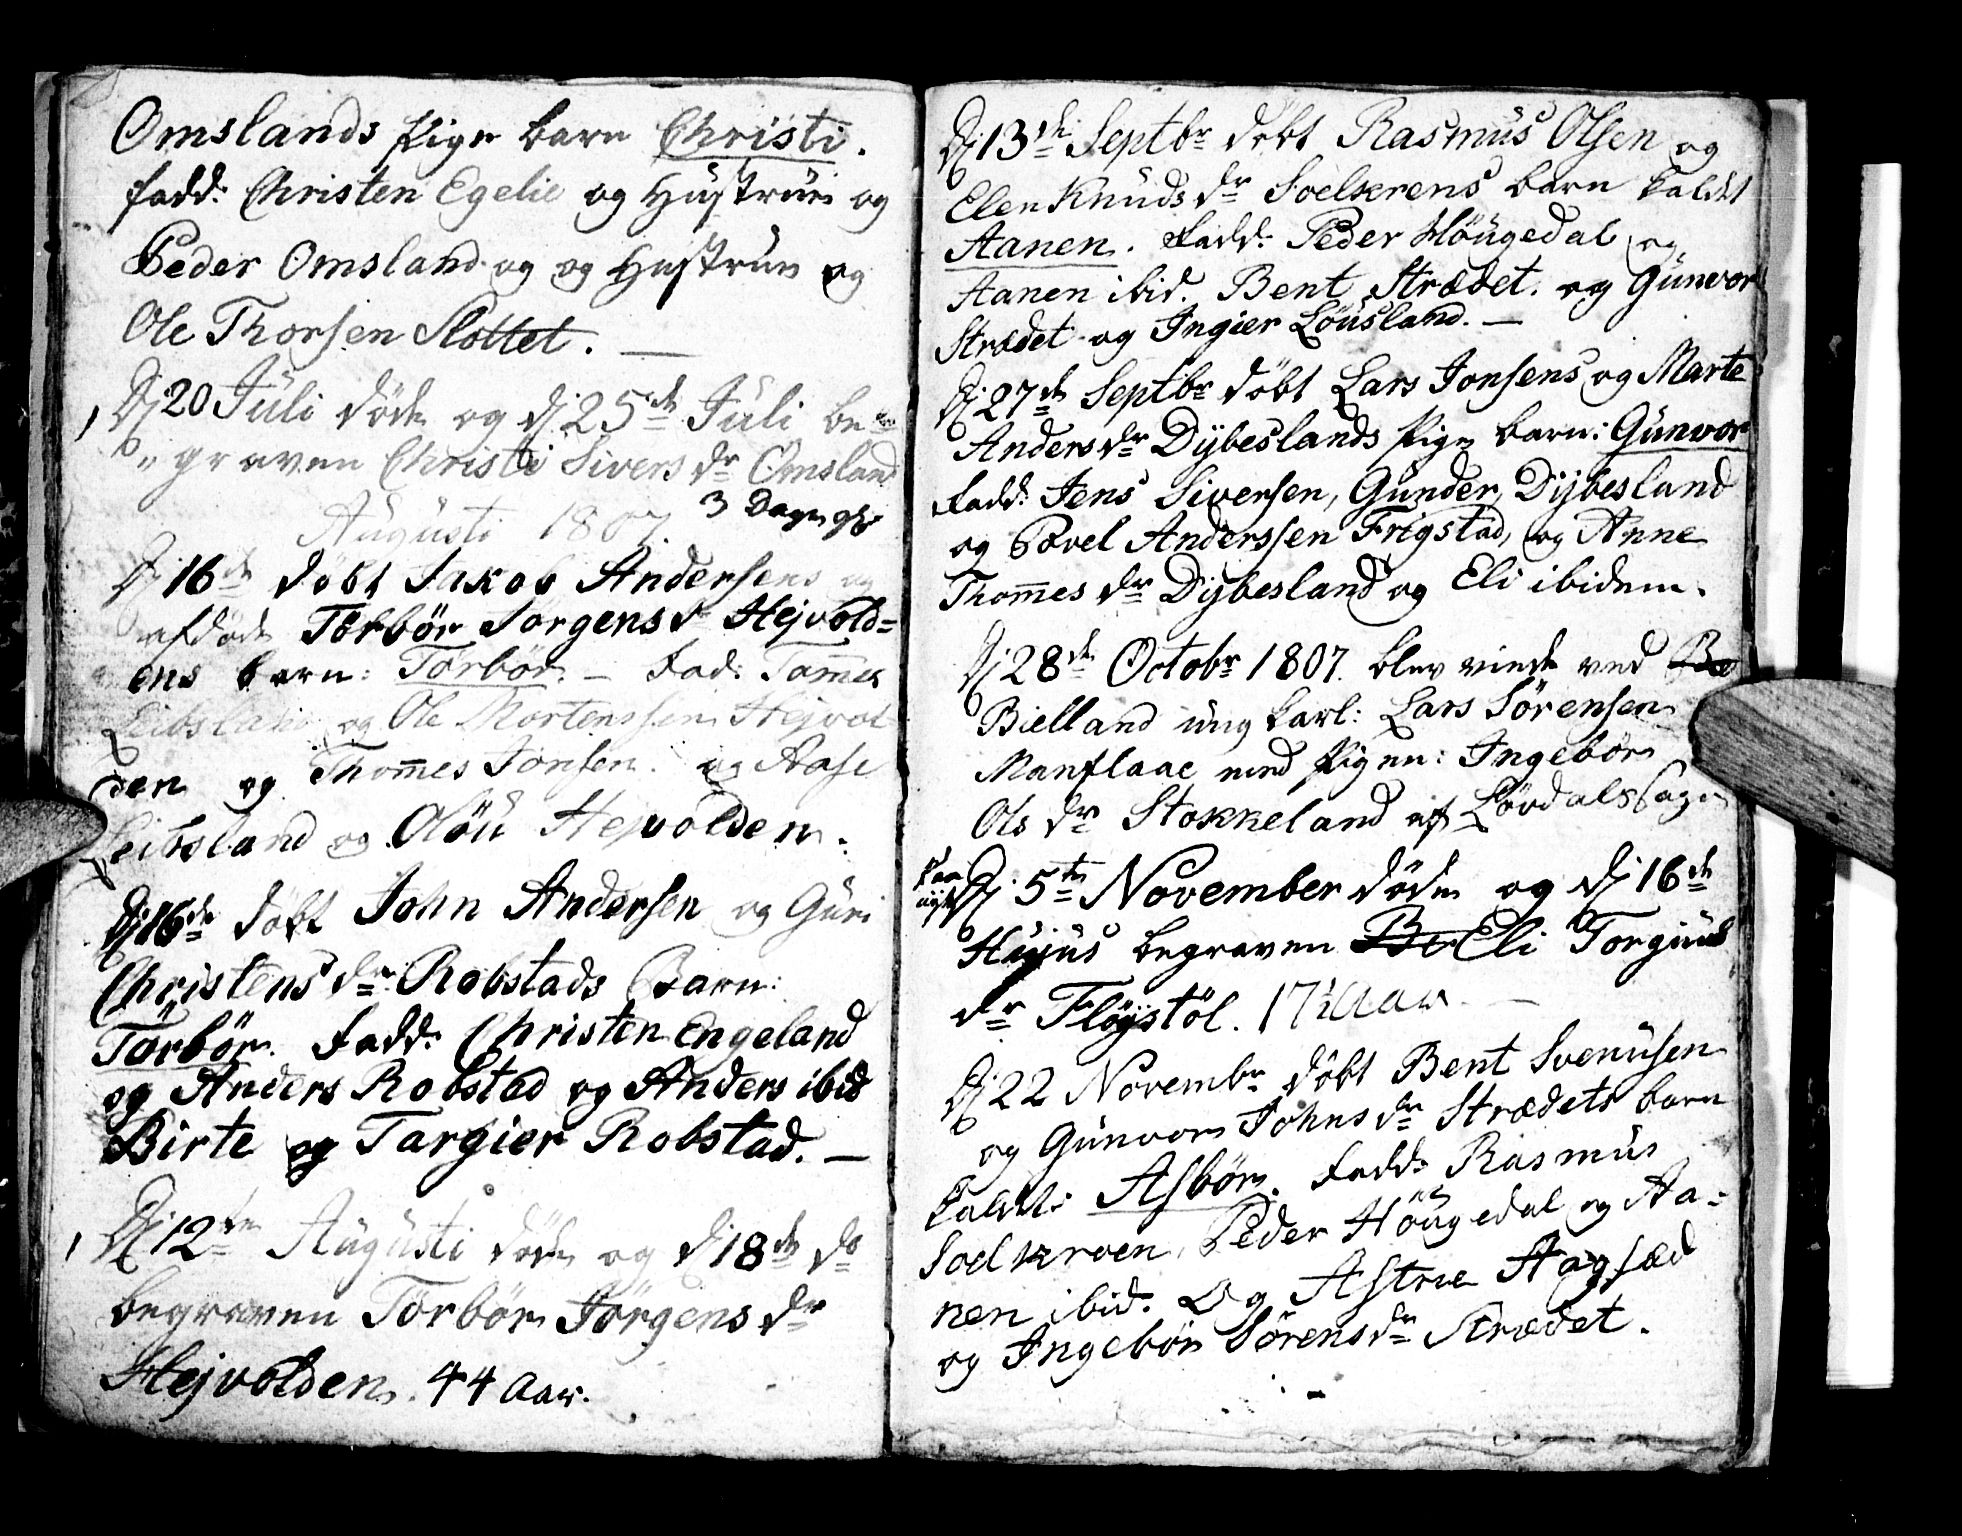 Omslands Pige barn Christi.
fadd: Christen Egelie og Hustrue og
Peder Omsland og og Hustrue og
Ole Thorsen Slottet. —
Dj 20 Juli døde og dj 25de Juli be=
" graven Christi Sivers dr Omsland
3 Dage gl:
Augusti 1807.
Dj 16de døbt Jakob Andersens og
afdøde Torbør Jorgens dr Hejvold=
ens barn: Torbør. — Fad: Tomes
Leibsland og Ole Mortenssen Hejvol
den og Thomes Jonsen. og Aase
Leibsland og Oløu Hejvolden.
Dj 16de døbt John Andersen og Guri
Christens dr Robstads Barn:
Torbør. Fadd: Christen Engeland
og Anders Robstad og Anders ibid
Birte og Targier Robstad. —
Dj 12te Augusti døde og dj 18de do
begraven Torbør Jørgens dr
Hejvolden. 44 Aar.
Dj 13de Septbr døbt Rasmus Olsen og
Elen Knuds dr Soelkrens barn kaldet
Aanen. Fadd: Peder Höugedal og
Aanen ibid. Bent Strædet. og Gunvor
Strædet og Ingier Löusland. —
Dj 27de Septbr döbt Lars Jonsens og Marte
Anders dr Dybeslands Pige barn: Gunvor
Fadd: Jens Siversen, Gunder Dybesland
og Povel Anderssen Frigstad, og Anne
Thomes dr Dybesland og Eli ibidem.
Dj 28de Octobr 1807. blev viede ved Be
Bielland ung karl: Lars Sörensen
Manflaae med Pigen: Ingebör
Ols dr Stokkeland af Lövdals Sogn
Dj 5te November döde og dj 16de
Hujus begraven Be Eli Torgius
dr Flöystöl. 17½ Aar. —
Dj 22 Novembr döbt Bent Svenusen
og Gunvor Johns dr Strædets barn
kaldet: Asbör. Fadd: Rasmus
Soelkroen, Peder Höugedal og Aa=
nen ibid. Og Astrue Aagsæd
og Ingebör Sörens dr Strædet.